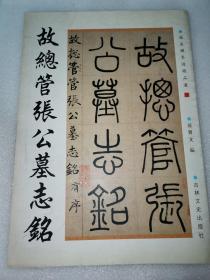 吉林文史出版社
故揔管張
公墓志銘
故總管張公墓志銘 有序
故總管張公墓志銘